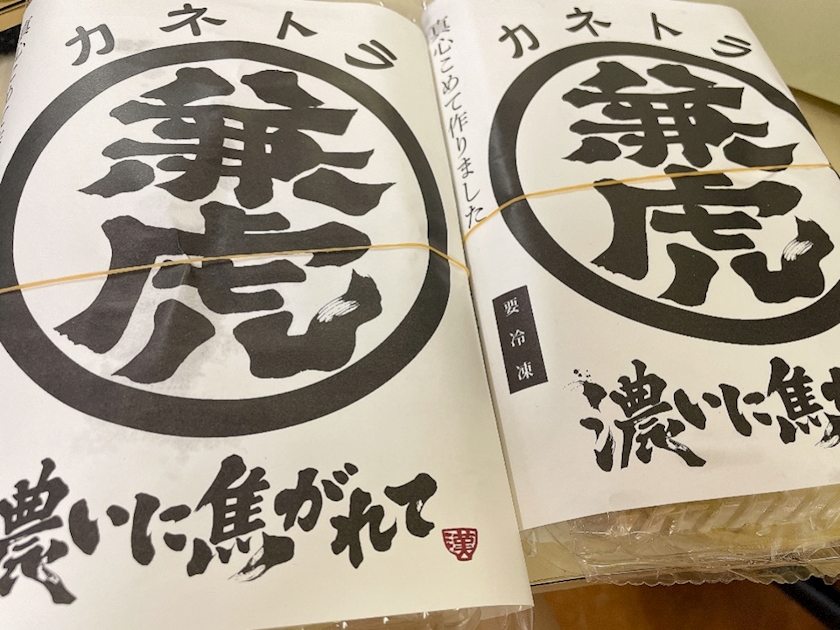 カネトラ
兼虎
濃いに焦がれて
漢
カネトラ
兼虎
真心こめて作りました
要冷凍
濃いに焦